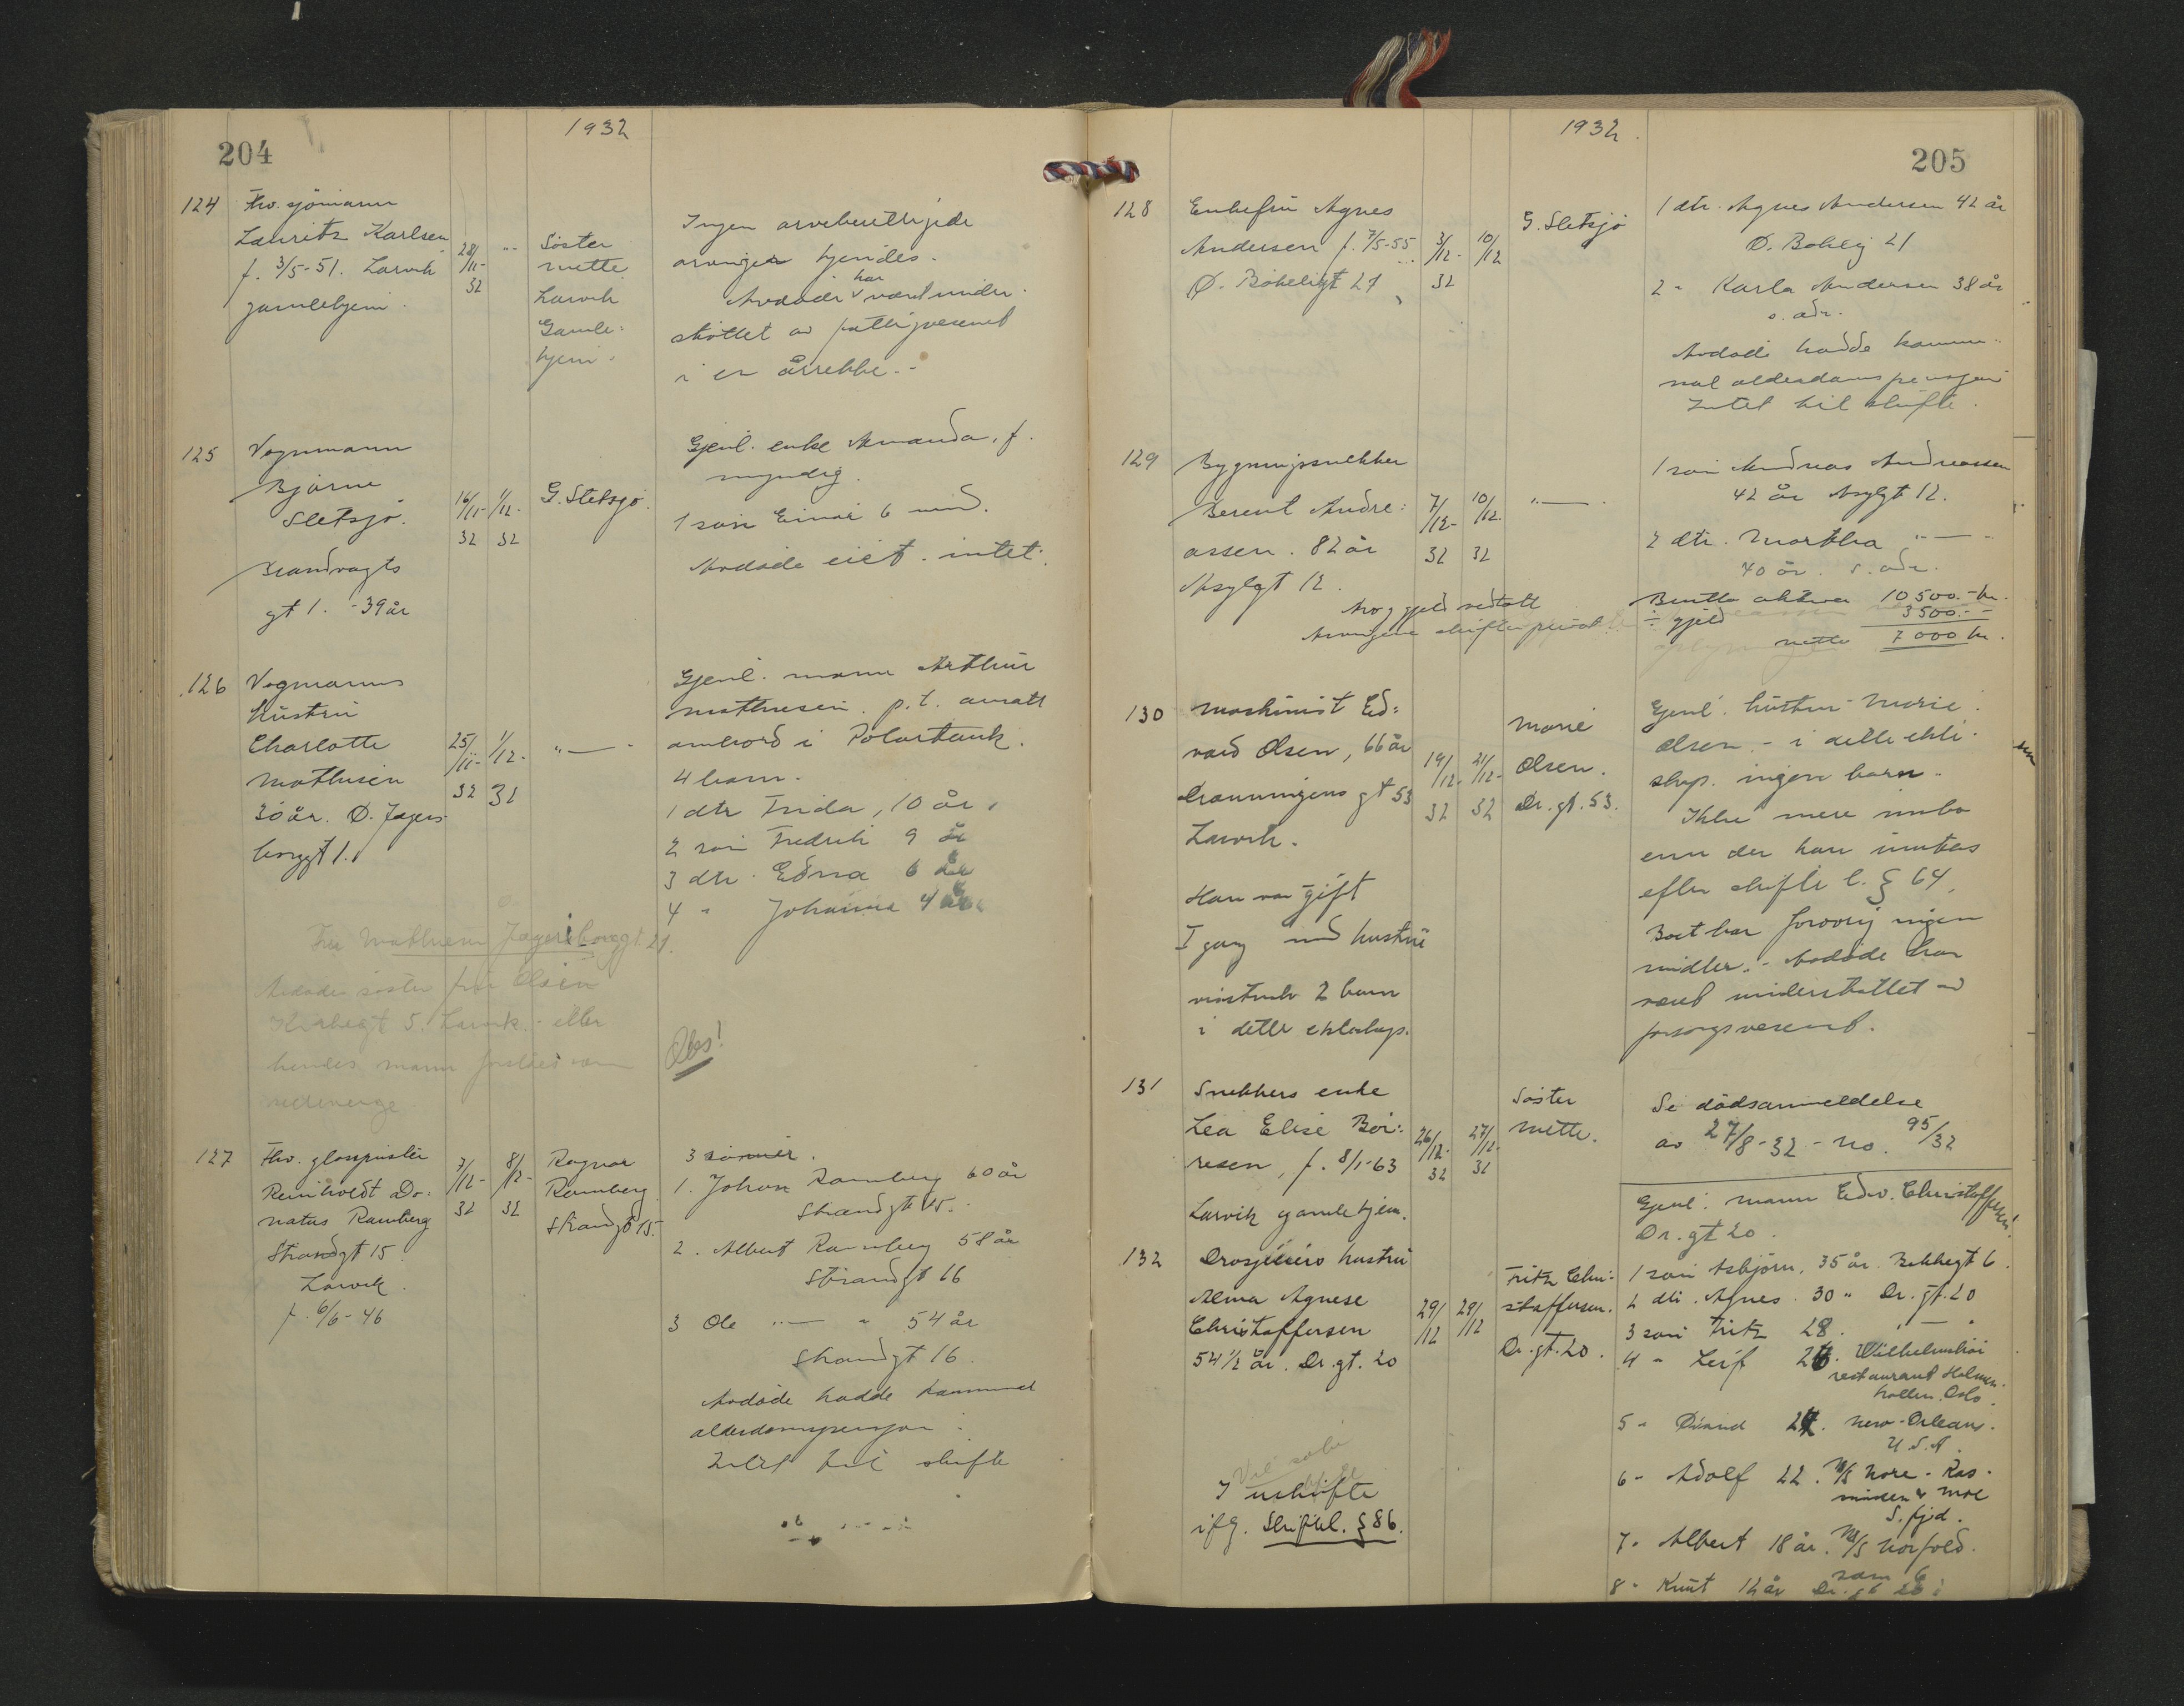 204
1932
124
Fhv. sjömann
Lauritz Karlsen
f. 3/5-51. Larvik
gamlehjem.
28/11-32
"
Söster
mette
Larvik
Gamle=
hjem.
Ingen arveberettigede
arvinger kjendes.
Avdöde har været under-
støttet av fattigvesenet
i en årrekke.-
125
Vognmann
Bjarne
Sletsjø.
Brandvagts
gt 1. -39 år
16/11-32
1/12-32
G. Sletsjø.
Gjenl. enke Amanda, f.
myndig.
1 søn Einar 6 mnd.
Avdøde eiet intet.
126
Vognmanns
hustru
Charlotte
Mathisen
30 år. Ø. Jegers-
borggt 1.
25/11-32
1/12-32
" — "
Gjenl. mann Arthur
Mathisen. p.t. ansatt
ombord i Polartank.
4 barn.
1 dtr Frida, 10 år.
2 søn Fredrik 9 år
3 dtr. Edna 6 år
4 " Johanna 4 år
Fru Mathisen Jegersborggt. 21.
Avdödes söster fru Olsen
5. Larvik. - eller
hendes mann foreslåes som
setteverge
Obs!
127
Fhv. glasspuster
Reinholdt Do=
natus Ramberg
Strandgt 15
Larvik.
f. 6/6-46
7/12-32
8/12-32
Ragnar
Ramberg
Strandgt 15.
3 sønner.
1. Johan Ramberg 60 år
Strandgt 15.
2. Albert Ramberg 58 år
Strandgt 16
3 Ole " — " 54 år
Strandgt 16.
Avdøde hadde kommunal
alderdomspensjon.
Intet til skifte
205
1932.
128
Enkefru Agnes
Andersen f. 7/5-55
Ø. Bökeligt 21
3/12-32
10/12
G. Sletsjø
1 dtr. Agnes Andersen 42 år
Ø. Bökelig 21
2 " Karla Andersen 38 år
s. adr.
Avdöde hadde kommu=
nal alderdomspensjon
Intet til skifte.
129
Bygningssnekker
Berent Andre=
assen. 82 år
Asylgt 12.
7/12-32
10/12-32
" — "
1 søn Andreas Andreassen
42 år Asylgt 12.
2 dtr. Martha " — "
40 år. s. adr.
Brutto aktiva 10 500.- kr.
÷ gjeld 3 500.--
netto 7 000 kr.
Arv og gjeld vedtatt
Arvingene skifter privat.
130
Maskinist Ed=
vard Olsen, 66 år
Dronningens gt 53
Larvik.
Han var gift
I gang med hustru
2 barn
i dette ekteskap.
19/12-32
21/12-32
Marie
Olsen.
Dr. gt. 53.
Gjenl. hustru Marie
Olsen. - i dette ekte-
skap. ingen barn.
Ikke mere innbo
enn der kan inntas
efter skifte l. § 64.
Boet har forøvrig ingen
midler. - Avdøde har
været understøttet av
forsorgsvesenet.
131
Snekkers enke
Lea Elise Bör=
resen, f. 8/1-63
Larvik gamlehjem.
26/12-32
27/12-32
Søster
Mette.
Se dödsanmeldelse
av 27/8-32 - no. 95/32
132
Drosjeeiers hustru
Alma Agnese
Christoffersen
54 1/2 år. Dr. gt. 20
29/12
29/12
Fritz Chri=
stoffersen.
Dr. gt. 20.
Gjenl. mann Edv. Christoffersen.
Dr. gt 20.
1 søn Asbjørn, 35 år. Bekkegt 6.
2 dtr. Agnes. 30 " Dr. gt. 20
3 søn Fritz 28. " — "
4 " Leif 26. Wilhelmshøi
restaurant Holmen-
kollen. Oslo.
5 " Øivind 24. New-Orleans.
U.S.A.
6 " Adolf 22. M/S Nore - Ras-
mussen & Moe
S. fjd.
7 " Albert 18 år. M/S Norfold.
som 6
8 " Knut 12 år Dr. gt 20
Vil søke
I uskifte
ifg. Skiftel. § 86.